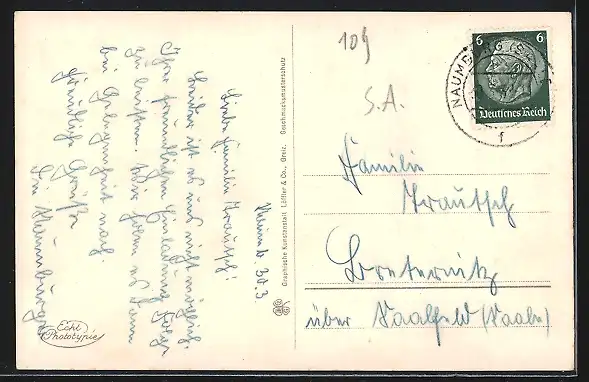 Naumb. 30.3.
Liebe Familie Trautsch!
Leider ist es uns nicht möglich,
Ihrer freundlichen Einladung Folge
zu leisten. Wir holen es dann
bei Gelegenheit nach.
Freundliche Grüße
Die Naumburger
Echt
Phototypie
Graphische Kunstanstalt Löffler & Co., Greiz.
Geschmacksmusterschutz
109
S.A.
NAUMBURG (S
f
6 6
Deutsches Reich
Familie
Trautsch
Breternitz
über Saalfeld (Saale)